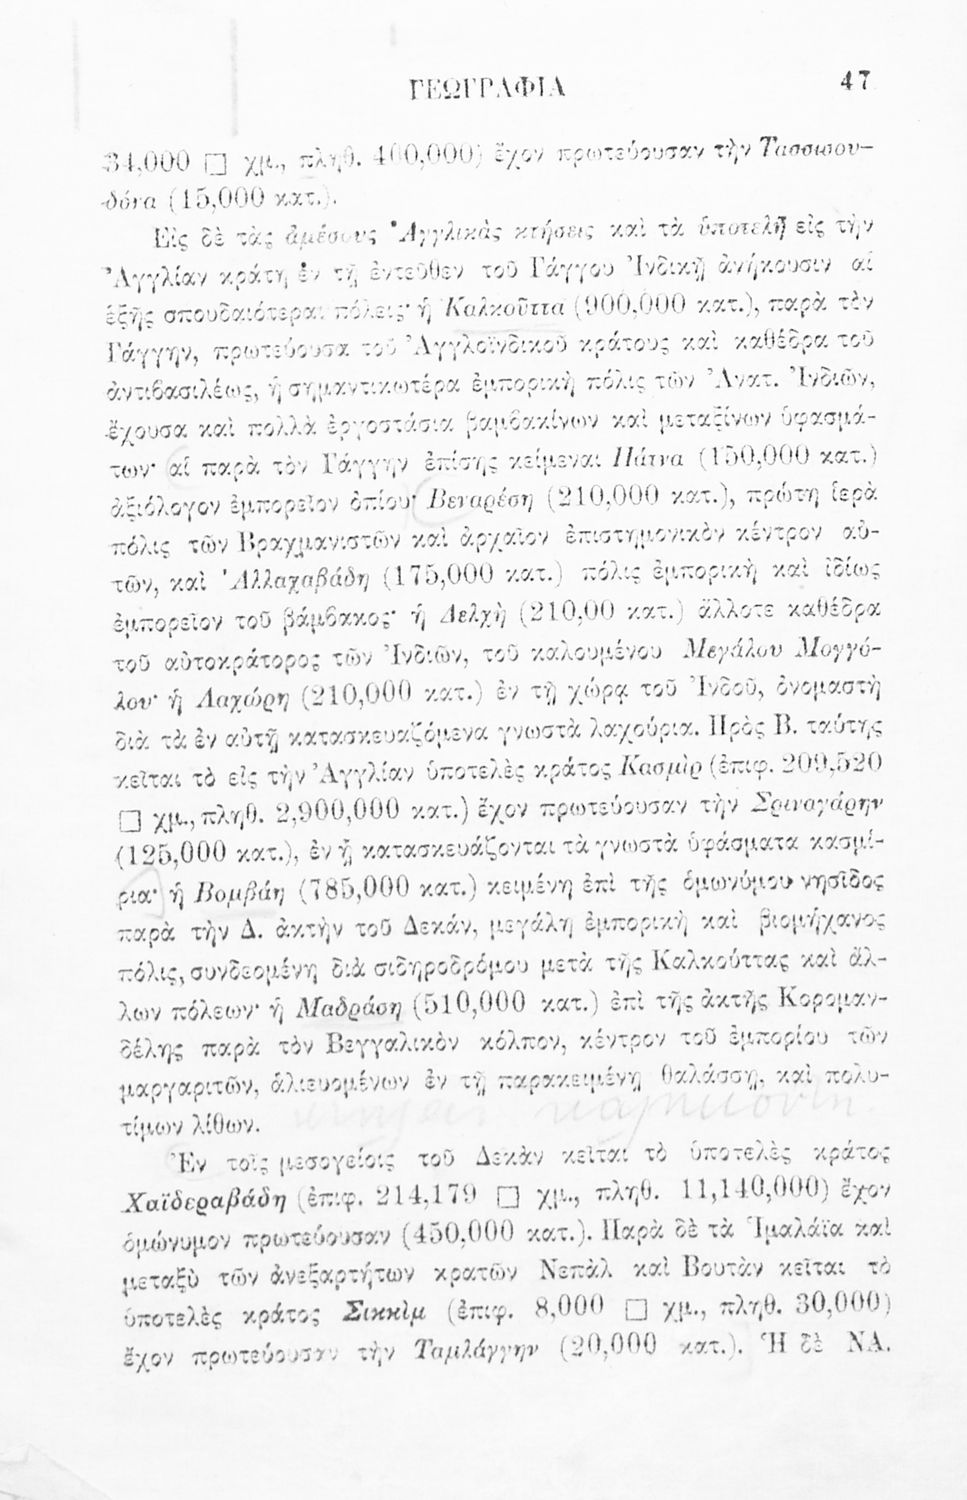 ΓΕΩΓΡΑΦΙΑ 47
34,000 □ χμ., πληθ. 400,000) ἔχον πρωτεύουσαν τὴν Τασσισου-
δόνα (15,000 κατ.).
Εἰς δὲ τὰς ἀμέσους Ἀγγλικὰς κτήσεις καὶ τὰ ὑποτελῆ εἰς τὴν
Ἀγγλίαν κράτη ἐν τῇ ἐντεῦθεν τοῦ Γάγγου Ἰνδικῇ ἀνήκουσιν αἱ
ἑξῆς σπουδαιότεραι πόλεις· ἡ Καλκοῦττα (900,000 κατ.), παρὰ τὸν
Γάγγην, πρωτεύουσα τοῦ Ἀγγλοϊνδικοῦ κράτους καὶ καθέδρα τοῦ
ἀντιβασιλέως, ἡ σημαντικωτέρα ἐμπορικὴ πόλις τῶν Ἀνατ. Ἰνδιῶν,
ἔχουσα καὶ πολλὰ ἐργοστάσια βαμβακίνων καὶ μεταξίνων ὑφασμά-
των· αἱ παρὰ τὸν Γάγγην ἐπίσης κείμεναι Πάτνα (150,000 κατ.)
ἀξιόλογον ἐμπορεῖον ὀπίου· Βεναρέση (210,000 κατ.), πρώτη ἱερὰ
πόλις τῶν Βραχμανιστῶν καὶ ἀρχαῖον ἐπιστημονικὸν κέντρον αὐ-
τῶν, καὶ Ἀλλαχαβάδη (175,000 κατ.) πόλις ἐμπορικὴ καὶ ἰδίως
ἐμπορεῖον τοῦ βάμβακος· ἡ Δελχὴ (210,00 κατ.) ἄλλοτε καθέδρα
τοῦ αὐτοκράτορος τῶν Ἰνδιῶν, τοῦ καλουμένου Μεγάλου Μογγό-
λου· ἡ Λαχώρη (210,000 κατ.) ἐν τῇ χώρᾳ τοῦ Ἰνδοῦ, ὀνομαστὴ
διὰ τὰ ἐν αὐτῇ κατασκευαζόμενα γνωστὰ λαχούρια. Πρὸς Β. ταύτης
κεῖται τὸ εἰς τὴν Ἀγγλίαν ὑποτελὲς κράτος Κασμὶρ (ἐπιφ. 209,520
□ χμ., πληθ. 2,900,000 κατ.) ἔχον πρωτεύουσαν τὴν Σριναγάρην
(125,000 κατ.), ἐν ᾗ κατασκευάζονται τὰ γνωστὰ ὑφάσματα κασμί-
ρια· ἡ Βομβάη (785,000 κατ.) κειμένη ἐπὶ τῆς ὁμωνύμου νησῖδος
παρὰ τὴν Δ. ἀκτὴν τοῦ Δεκάν, μεγάλη ἐμπορικὴ καὶ βιομήχανος
πόλις, συνδεομένη διὰ σιδηροδρόμου μετὰ τῆς Καλκούττας καὶ ἄλ-
λων πόλεων· ἡ Μαδράση (510,000 κατ.) ἐπὶ τῆς ἀκτῆς Κορομαν-
δέλης παρὰ τὸν Βεγγαλικὸν κόλπον, κέντρον τοῦ ἐμπορίου τῶν
μαργαριτῶν, ἁλιευομένων ἐν τῇ παρακειμένῃ θαλάσσῃ, καὶ πολυ-
τίμων λίθων.
Ἐν τοῖς μεσογείοις τοῦ Δεκὰν κεῖται τὸ ὑποτελὲς κράτος
Χαϊδεραβάδη (ἐπιφ. 214,179 □ χμ., πληθ. 11,140,000) ἔχον
ὁμώνυμον πρωτεύουσαν (450,000 κατ.). Παρὰ δὲ τὰ Ἱμαλάϊα καὶ
μεταξὺ τῶν ἀνεξαρτήτων κρατῶν Νεπὰλ καὶ Βουτὰν κεῖται τὸ
ὑποτελὲς κράτος Σικκὶμ (ἐπιφ. 8,000 □ χμ., πληθ. 30,000)
ἔχον πρωτεύουσαν τὴν Ταμλάγγην (20,000 κατ.). Ἡ δὲ ΝΑ.